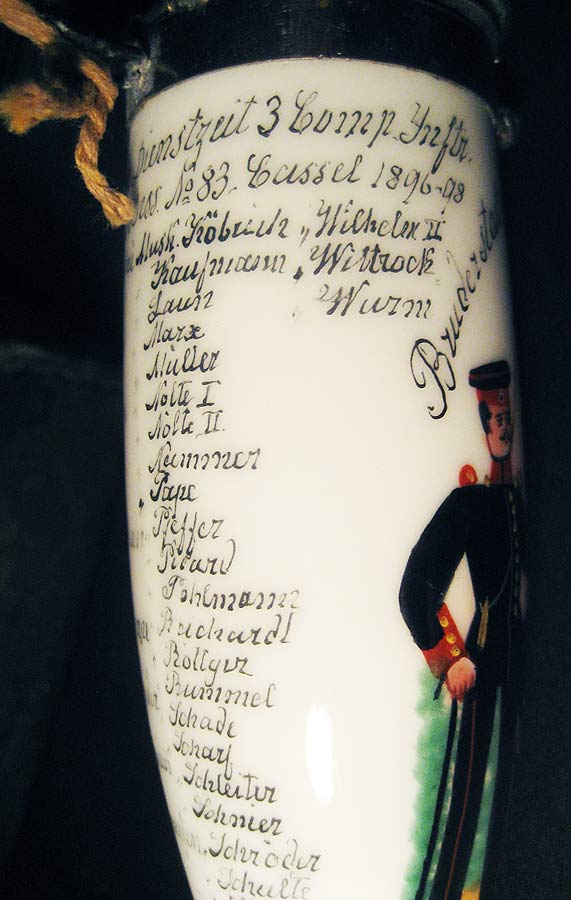 Dienstzeit 3 Comp. Inftr.
No 83. Cassel 1896-98
Musk. Köbrich „ Wilhelm II
Kaufmann „ Wittrock
Laun „ Wurm
Marx
Müller
Nolte I
Nolte II.
Nummer
Pape
Pfeffer
Picard
Pohlmann
Reichardt
Röttger
Rummel
Schade
Scharf
Schleiter
Schnier
Schröder
Schulte